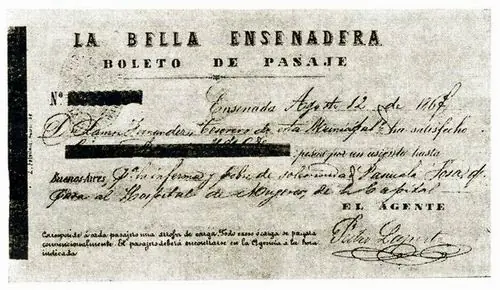 LA BELLA ENSENADERA
BOLETO DE PASAJE
Nº
Ensenada, Agosto 12 de 186
D. Ramon Fernandez, Tesorero de esta Municipal ha satisfecho
pesos por un asiento hasta
Buenos-Aires, Pª la enferma y pobre de solemnidad Pascuala Sosa
para al Hospital de Mugeres, de la Capital
EL AGENTE
Corresponde á cada pasajero una arroba de carga. Todo exeso ó carga se pagará
convencionalmente. El pasajero deberá encontrarse en la Agencia á la hora
indicada